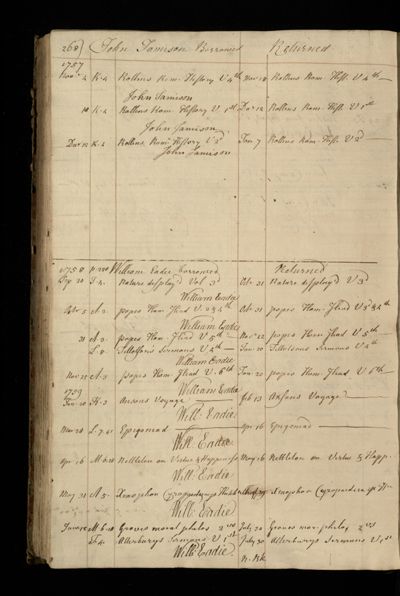 268 John Jamison Borrowed Returned
1757
Nov 4 K.2 Rollins Rom. History V 4th Nov 18 Rollins Rom. Hist. V 4th
John Jamison
18 K.2 Rollins Rom. History V 1st Dec 12 Rollins Rom. Hist. V 1st
John Jamison
Decr 12 K.2 Rollins Rom. History V 2d Jan 7 Rollins Rom. Hist. V 2d
John Jamison
1758 William Eadie borrowed Returned
Sep 20 I.4. Nature display'd Vol 3d Octr 21 Nature display'd V 3d
William Eadie
Octr 5 A.2 popes Hom. Iliad V. 2 & 4th Octr 21 popes Hom. Iliad V 2 & 4th
William Eadie
21 A.2 popes Hom. Iliad V 5th Novr 22 popes Hom Iliad V 5th
L.8 Tillotsons Sermons V 4th Jan 20 Tillotsons Sermons V 4th
William Eadie
Nov 22 A.2 popes Hom Iliad V. 6th Jan 20 popes Hom. Iliad V 6th
1759 William Eadie
Jan 20 K.3 Ansons Voyage Feb 13 Ansons Voyage
Will. Eadie
Mar 28 L.7. Epigoniad Apr 16 Epigoniad
Will. Eadie
Apr 16 M. Nettleton on Vertue & Happiness May 16 Nettleton on Vertue & Happ.
Will. Eadie
May 31 A.5. Xenophon Cyropaedia Xenophon Cyropaedia
Will Eadie
June M.6 Groves moral philos. 2 July 20 Groves mor. philos 2
F.4. Atterburys Sermons V 1st July 20 Atterburys Sermons V 1st
Will Eadie